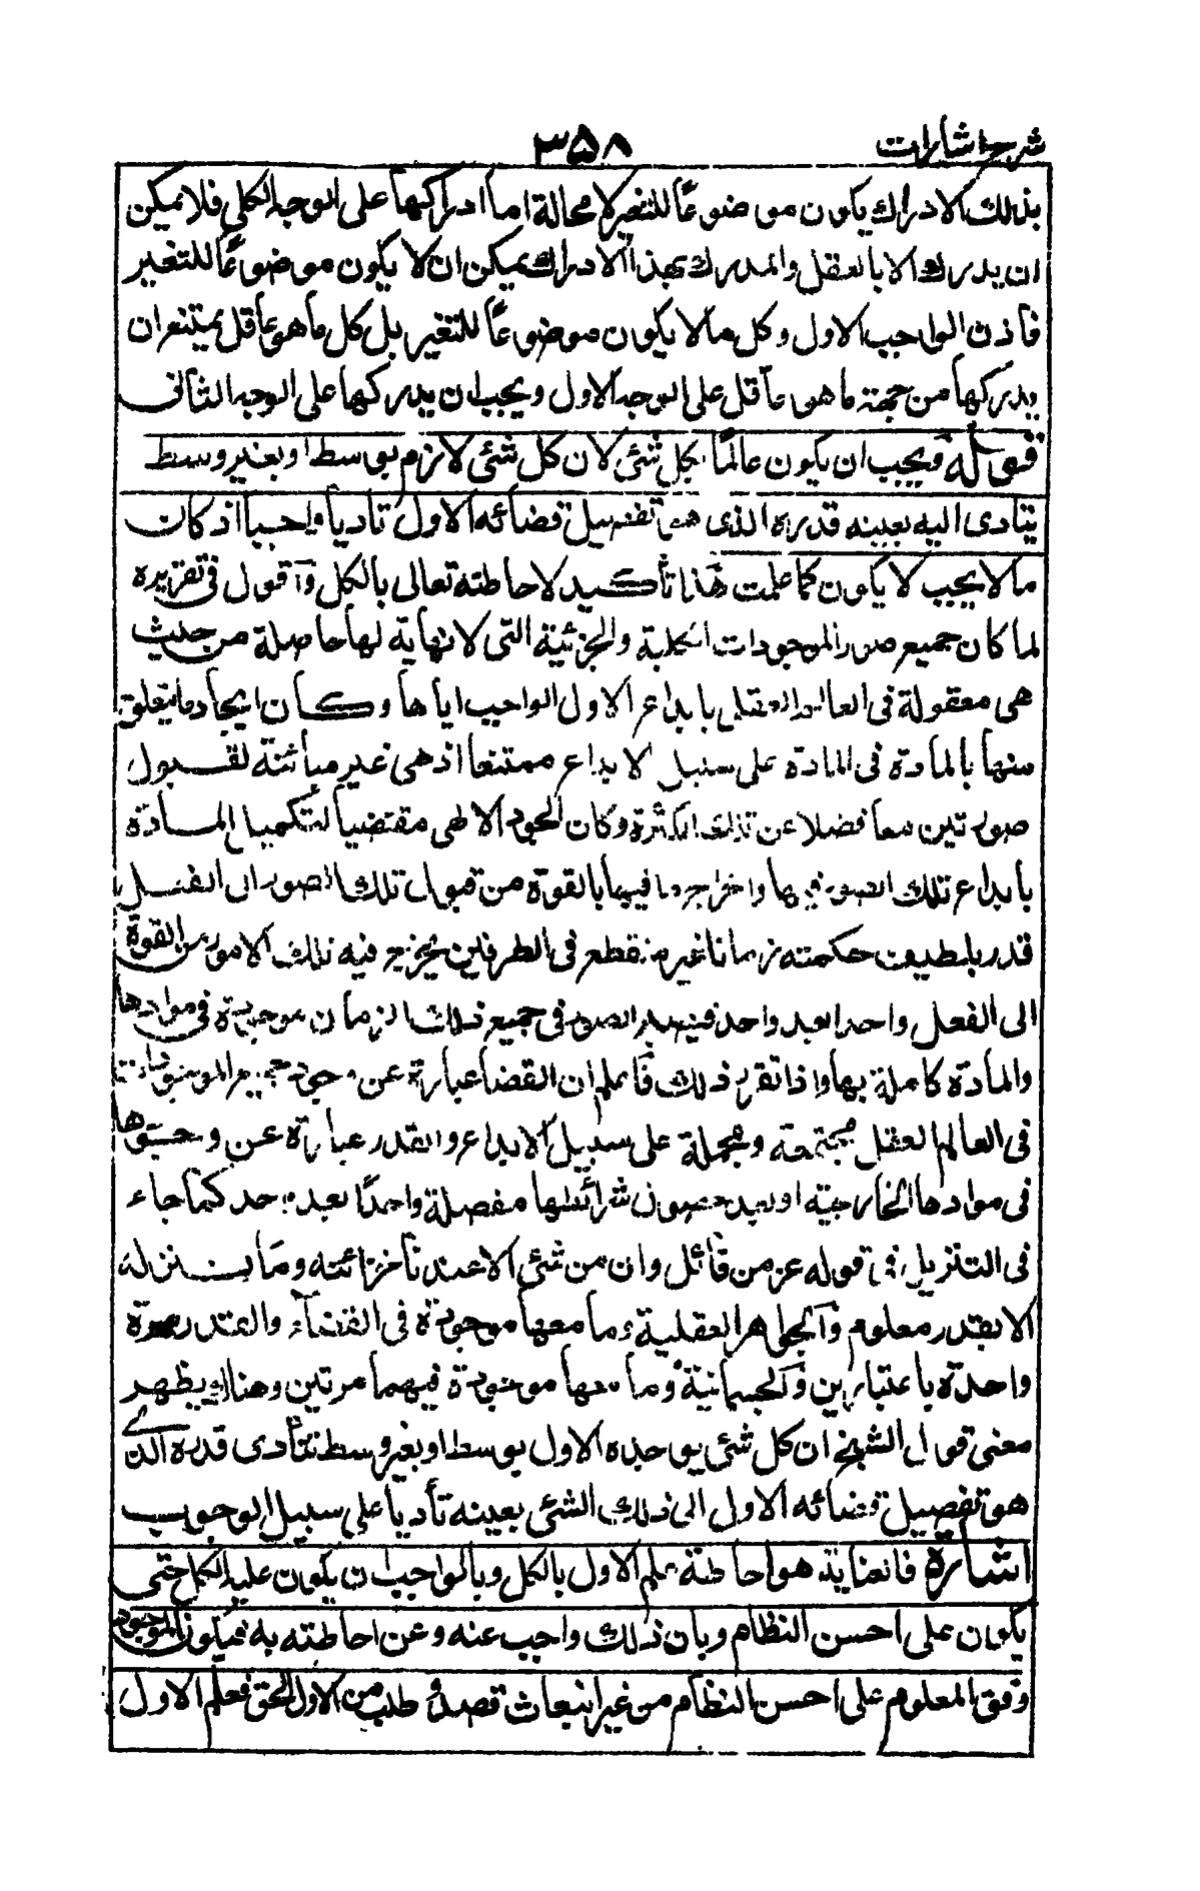 شرح اشارات ۳۵۸
بذلك الادراك يكون موضوعًا للتغير لا محالة اما ادراكها على الوجه الكلى فلا يمكن
ان يدرك الا بالعقل والمدرك بهذا الادراك يمكن ان لا يكون موضوعًا للتغير
فاذن الواجب الاول وكل ما لا يكون موضوعًا للتغير بل كل ما هو عاقل يمتنع ان
يدركها من جهة ما هو عاقل على الوجه الاول ويجب ان يدركها على الوجه الثانى
قوله ويجب ان يكون عالمًا بكل شئ لان كل شئ لازم بوسط او بغير وسط
يتادى اليه بعينه قدره الذى هو تفصيل قضائه الاول تاديا واجبا اذ كان
ما لا يجب لا يكون كما علمت هذا تأكيد لاحاطته تعالى بالكل واقول فى تقريره
لما كان جميع صور الموجودات الكلية والجزئية التى لا نهاية لها حاصلة من حيث
هى معقولة فى العالم العقلى بابداع الاول الواجب اياها وكان ايجاد ما يتعلق
منها بالمادة فى المادة على سبيل الابداع ممتنعا اذ هى غير متأتية لقبول
صورتين معا فضلا عن تلك الكثرة وكان الجود الالهى مقتضيا لتكميل المادة
بابداع تلك الصور فيها واخراج ما فيها بالقوة من قبول تلك الصور الى الفعل
قدر بلطيف حكمته زمانا غير منقطع فى الطرفين يخرج فيه تلك الامور من القوة
الى الفعل واحدا بعد واحد فيصير الصور فى جميع ذلك الزمان موجودة فى موادها
والمادة كاملة بها واذا تقرر ذلك فاعلم ان القضا عبارة عن وجود جميع الموجودات
فى العالم العقلى مجتمعة ومجملة على سبيل الابداع والقدر عبارة عن وجودها
فى موادها الخارجية او بعد حصول شرائطها مفصلة واحدًا بعد واحد كما جاء
فى التنزيل فى قوله عز من قائل وان من شئ الا عندنا خزائنه وما ننزله
الا بقدر معلوم والجواهر العقلية وما معها موجودة فى القضاء والقدر مرة
واحدة باعتبارين والجسمانية وما معها موجودة فيهما مرتين وهنالك يظهر
معنى قول الشيخ ان كل شئ يوجده الاول بوسط او بغير وسط يتأدى قدره الذى
هو تفصيل قضائه الاول الى ذلك الشئ بعينه تأديا على سبيل الوجوب
اشارة فالعناية هو احاطة علم الاول بالكل وبالواجب ان يكون عليه الكل حتى
يكون على احسن النظام وبان ذلك واجب عنه وعن احاطته به فيكون الموجود
وفق المعلوم على احسن النظام من غير انبعاث قصد و طلب من الاول الحق فعلم الاول